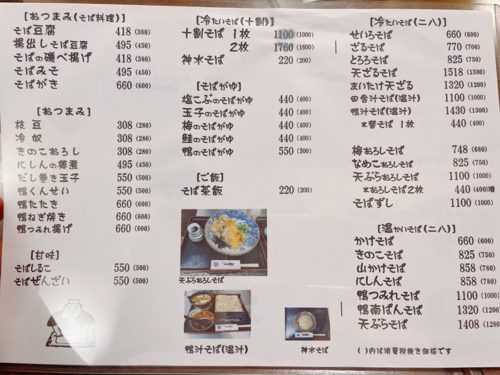 [おつまみ(そば料理)]
そば豆腐 418 (380)
揚出しそば豆腐 495 (450)
そばの磯べ揚げ 418 (380)
そばみそ 495 (450)
そばがき 660 (600)
[おつまみ]
枝豆 308 (280)
冷奴 308 (280)
きのこおろし 308 (280)
にしんの棒煮 495 (450)
だし巻き玉子 550 (500)
鴨くんせい 550 (500)
鴨たたき 660 (600)
鴨ねぎ焼き 660 (600)
鴨つみれ揚げ 660 (600)
[甘味]
そばしるこ 550 (500)
そばぜんざい 550 (500)
[冷たいそば(十割)]
十割そば 1枚 1100 (1000)
2枚 1760 (1600)
神水そば 220 (200)
[そばがゆ]
塩こぶのそばがゆ 440 (400)
玉子のそばがゆ 440 (400)
梅のそばがゆ 440 (400)
鮭のそばがゆ 440 (400)
鴨のそばがゆ 550 (500)
[ご飯]
そば茶飯 220 (200)
天ぷらおろしそば
鴨汁そば(温汁)
神水そば
[冷たいそば(二八)]
せいろそば 660 (600)
ざるそば 770 (700)
とろろそば 825 (750)
天ざるそば 1518 (1380)
まいたけ天ざる 1320 (1200)
田舎汁そば(温汁) 1100 (1000)
鴨汁そば(温汁) 1430 (1300)
*替そば 1枚 440 (400)
梅おろしそば 748 (680)
なめこおろしそば 825 (750)
天ぷらおろしそば 1100 (1000)
*おろしそば2枚 440 (400)増
そばずし 1100 (1000)
[温かいそば(二八)]
かけそば 660 (600)
きのこそば 825 (750)
山かけそば 858 (780)
にしんそば 858 (780)
鴨つみれそば 1100 (1000)
鴨南ばんそば 1320 (1200)
天ぷらそば 1408 (1280)
( )内は消費税抜き価格です